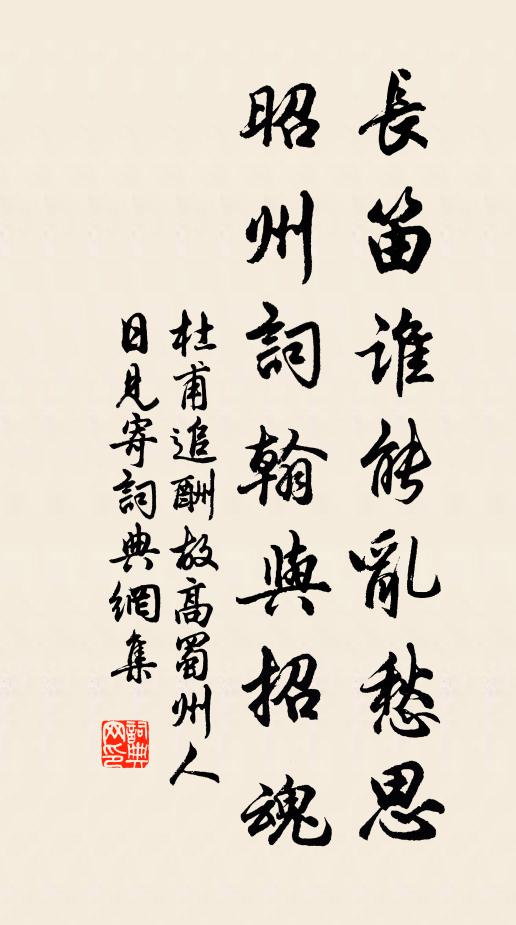 長笛誰能亂愁思
昭州詞翰與招魂
杜甫追酬故高蜀州人
日見寄詞典網集
詞典網印